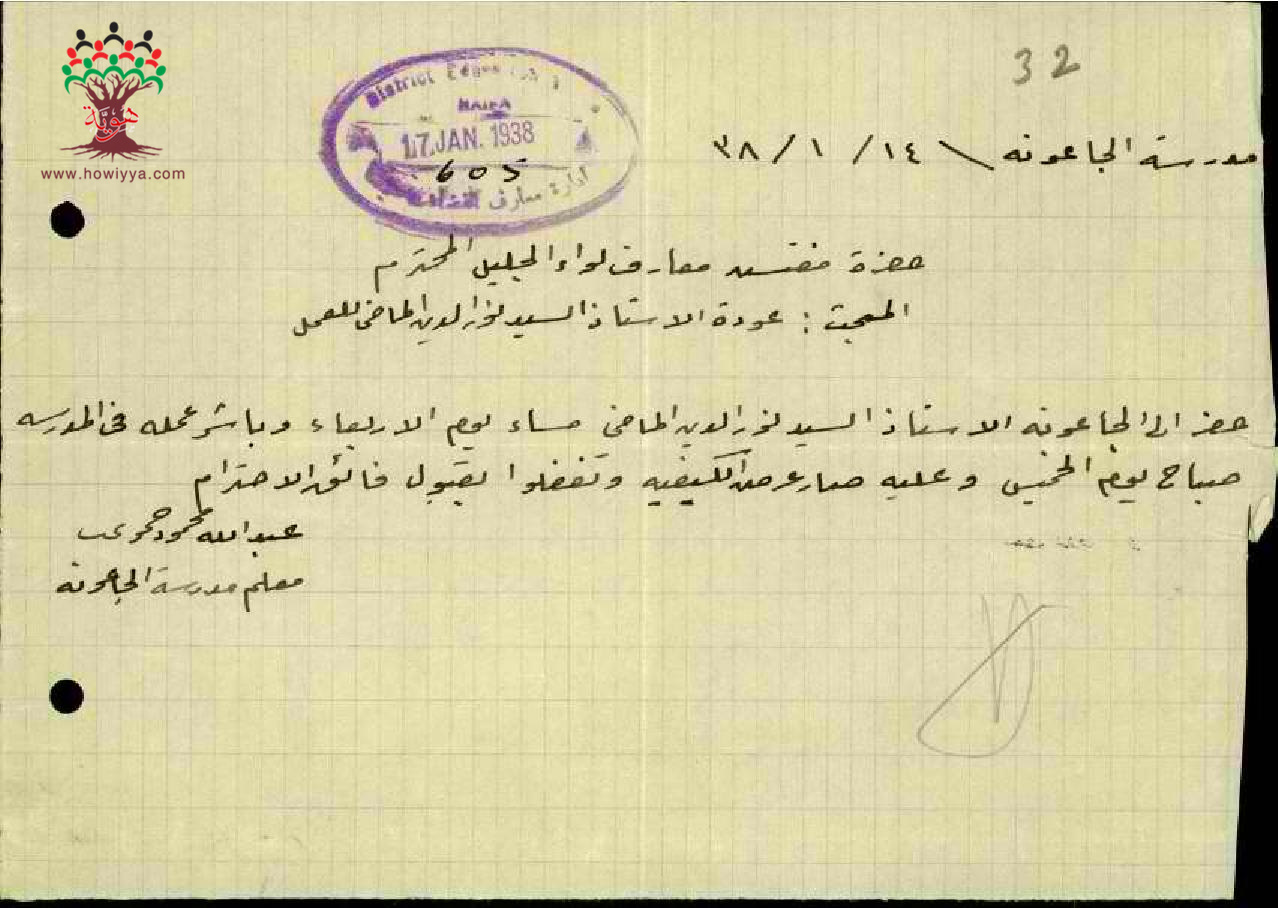 32
هويّة
www.howiyya.com
District
HAIFA
17 JAN. 1938
605
ادارة معارف
مدرسة الجاعونه \ ١٤ / ١ / ٣٨
حضرة مفتش معارف لواء الجليل المحترم
المبحث : عودة الاستاذ السيد نور الدين الماضي للعمل
حضر الى الجاعونه الاستاذ السيد نور الدين الماضي مساء يوم الاربعاء وباشر عمله في المدرسه
صباح يوم الخميس وعليه صار عرض الكيفيه وتفضلوا بقبول فائق الاحترام
عبد الله محمود
معلم مدرسة الجاعونه